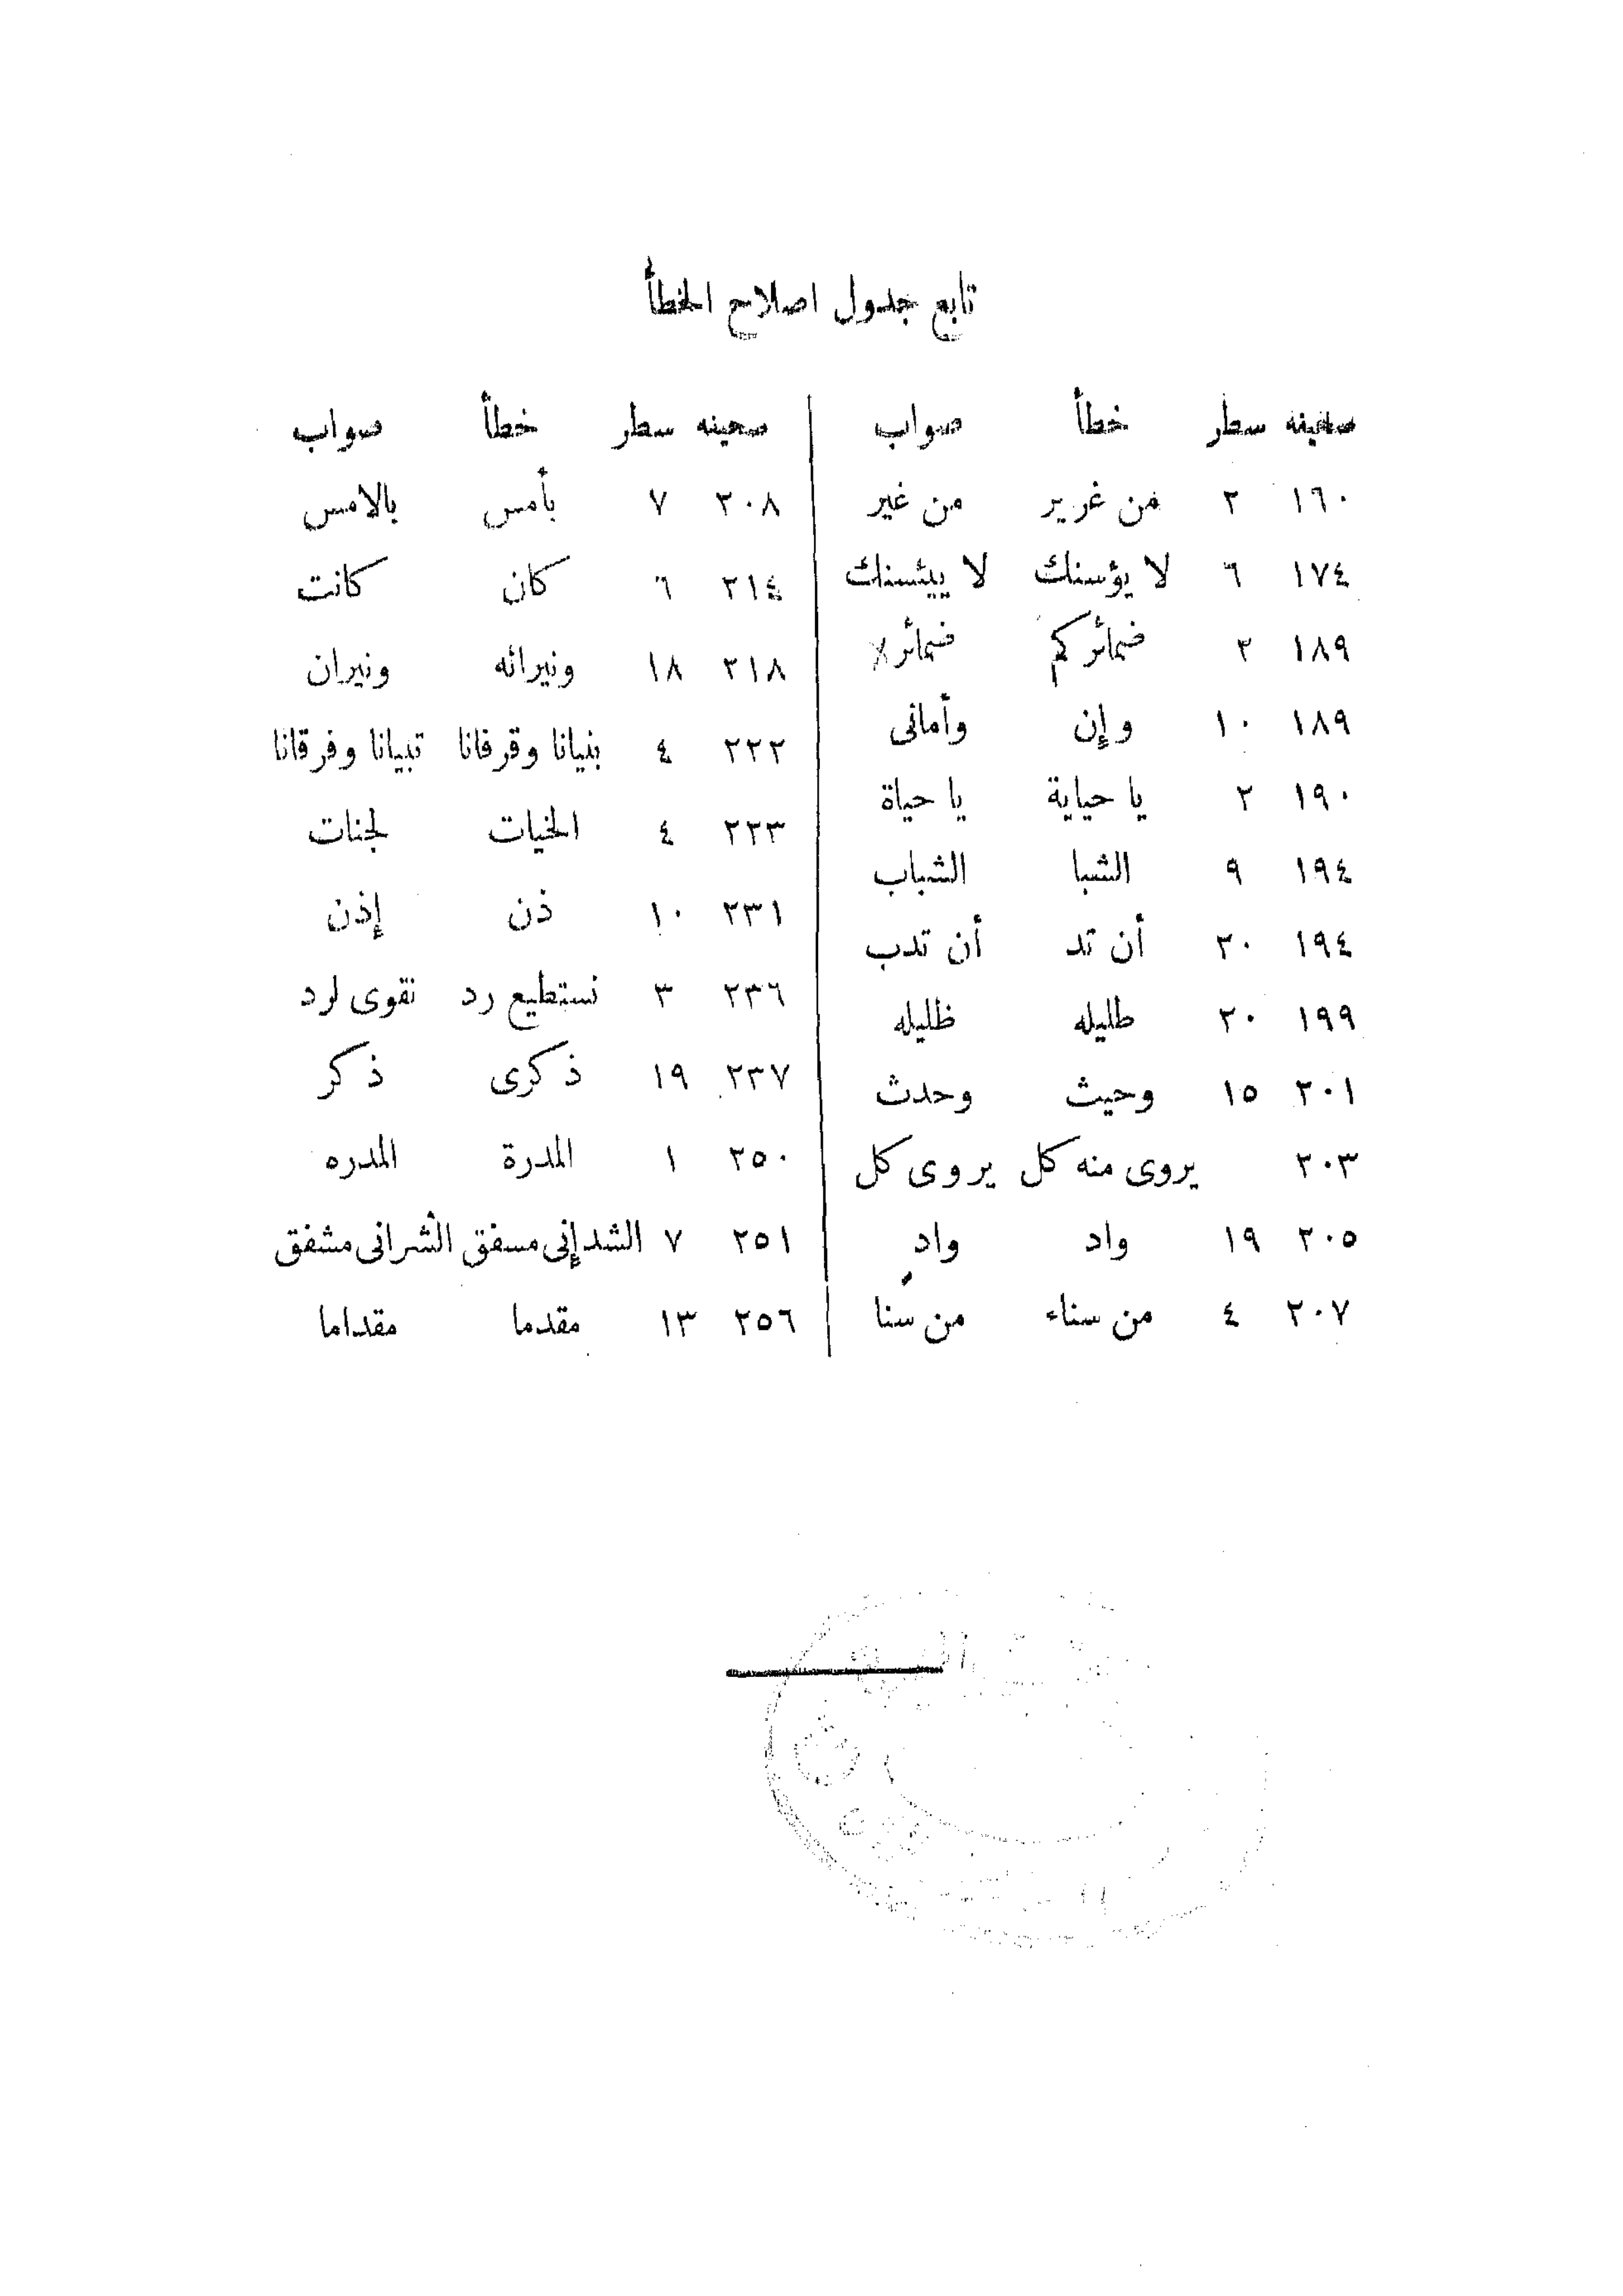 تابع جدول اصلاح الخطأ
صحيفه سطر خطأ صواب
١٦٠ ٢ من غرير من غير
١٧٤ ٦ لا يؤسنك لا ييئسنك
١٨٩ ٢ ضمائركم ضمائر
١٨٩ ١٠ وإن وأمانى
١٩٠ ٢ يا حياية يا حياة
١٩٤ ٩ الشبا الشباب
١٩٤ ٢٠ أن تد أن تدب
١٩٩ ٢٠ طليله ظليله
٢٠١ ١٥ وحيث وحدث
٢٠٣ يروى منه كل يروى كل
٢٠٥ ١٩ واد وادٍ
٢٠٧ ٤ من سناء من سنا
صحيفه سطر خطأ صواب
٢٠٨ ٧ بأمس بالامس
٢١٤ ٦ كان كانت
٢١٨ ١٨ ونيرانه ونيران
٢٢٢ ٤ بنيانا وقرفانا تبيانا وفرقانا
٢٢٣ ٤ الخيات لجنات
٢٣١ ١٠ ذن إذن
٢٣٦ ٣ نستطيع رد نقوى لرد
٢٣٧ ١٩ ذكرى ذكر
٢٥٠ ١ المدرة المدره
٢٥١ ٧ الشد إنى مسفق الشرانى مشفق
٢٥٦ ١٣ مقدما مقداما